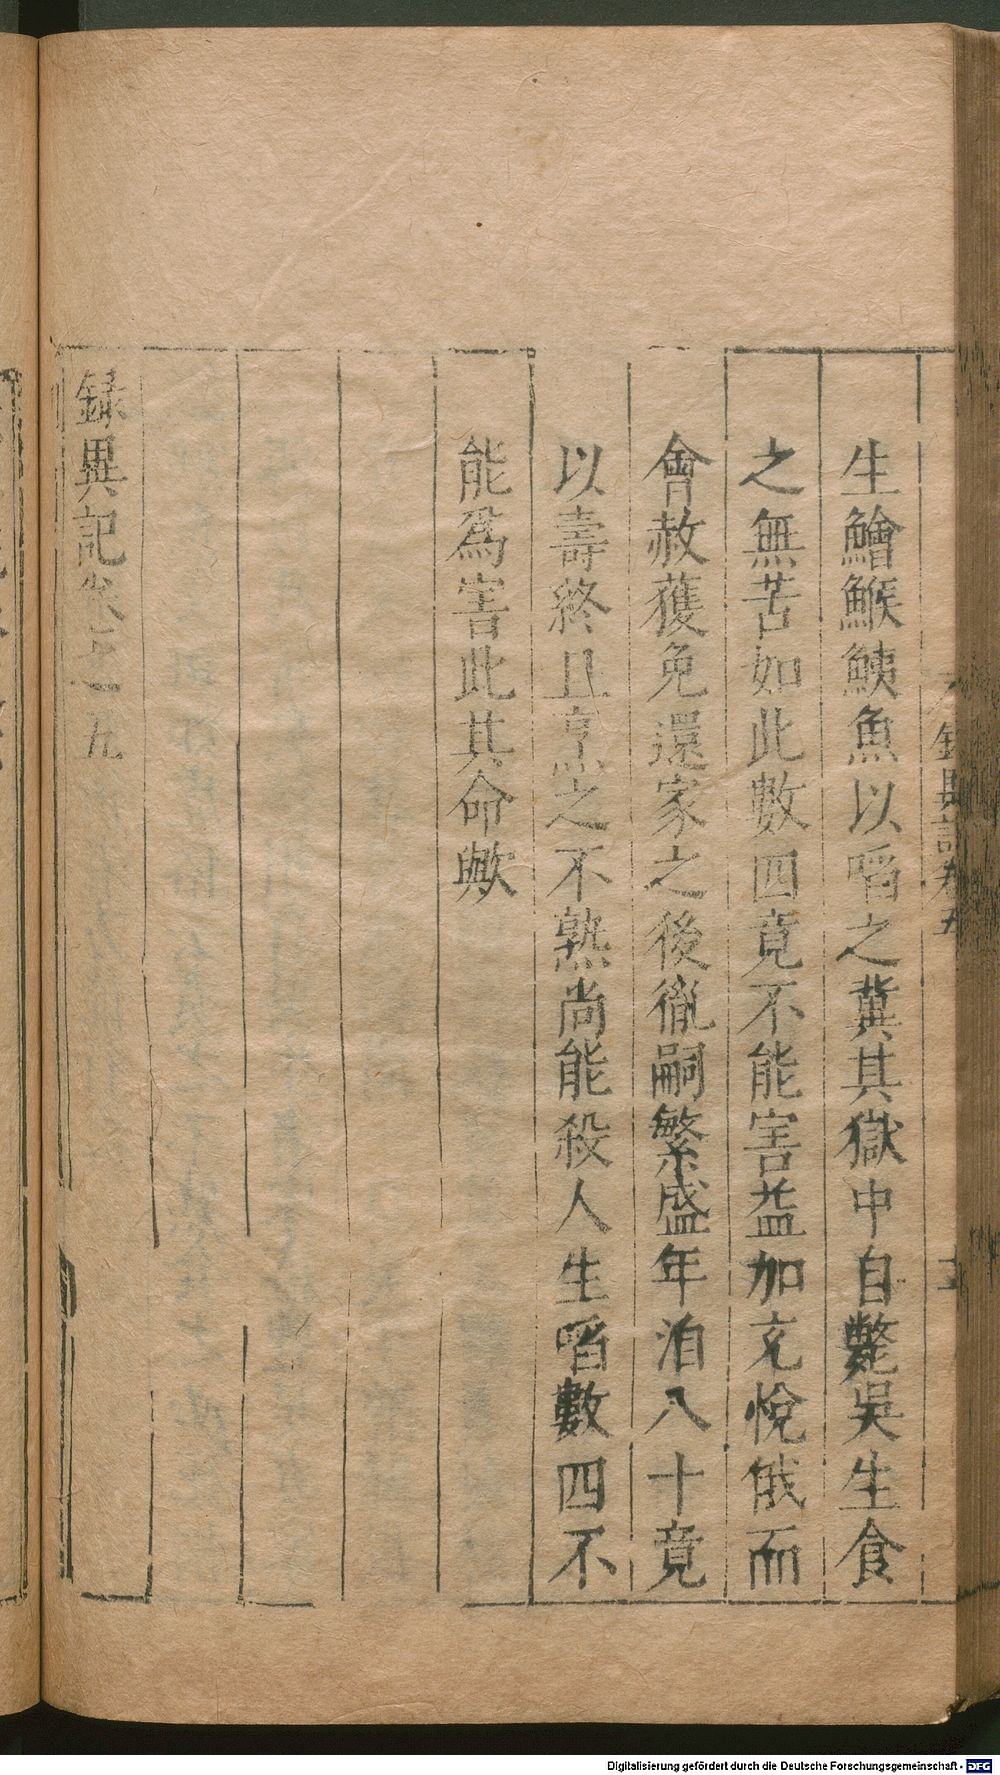 生鱠鯸鮧魚以啗之冀其獄中自斃吳生食
之無苦如此數四竟不能害益加充悅俄而
會赦獲免還家之後徹嗣繁盛年洎八十竟
以壽終且烹之不熟尚能殺人生啗數四不
能爲害此其命歟
錄異記卷之五
錄異記卷五
Digitalisierung gefördert durch die Deutsche Forschungsgemeinschaft - DFG